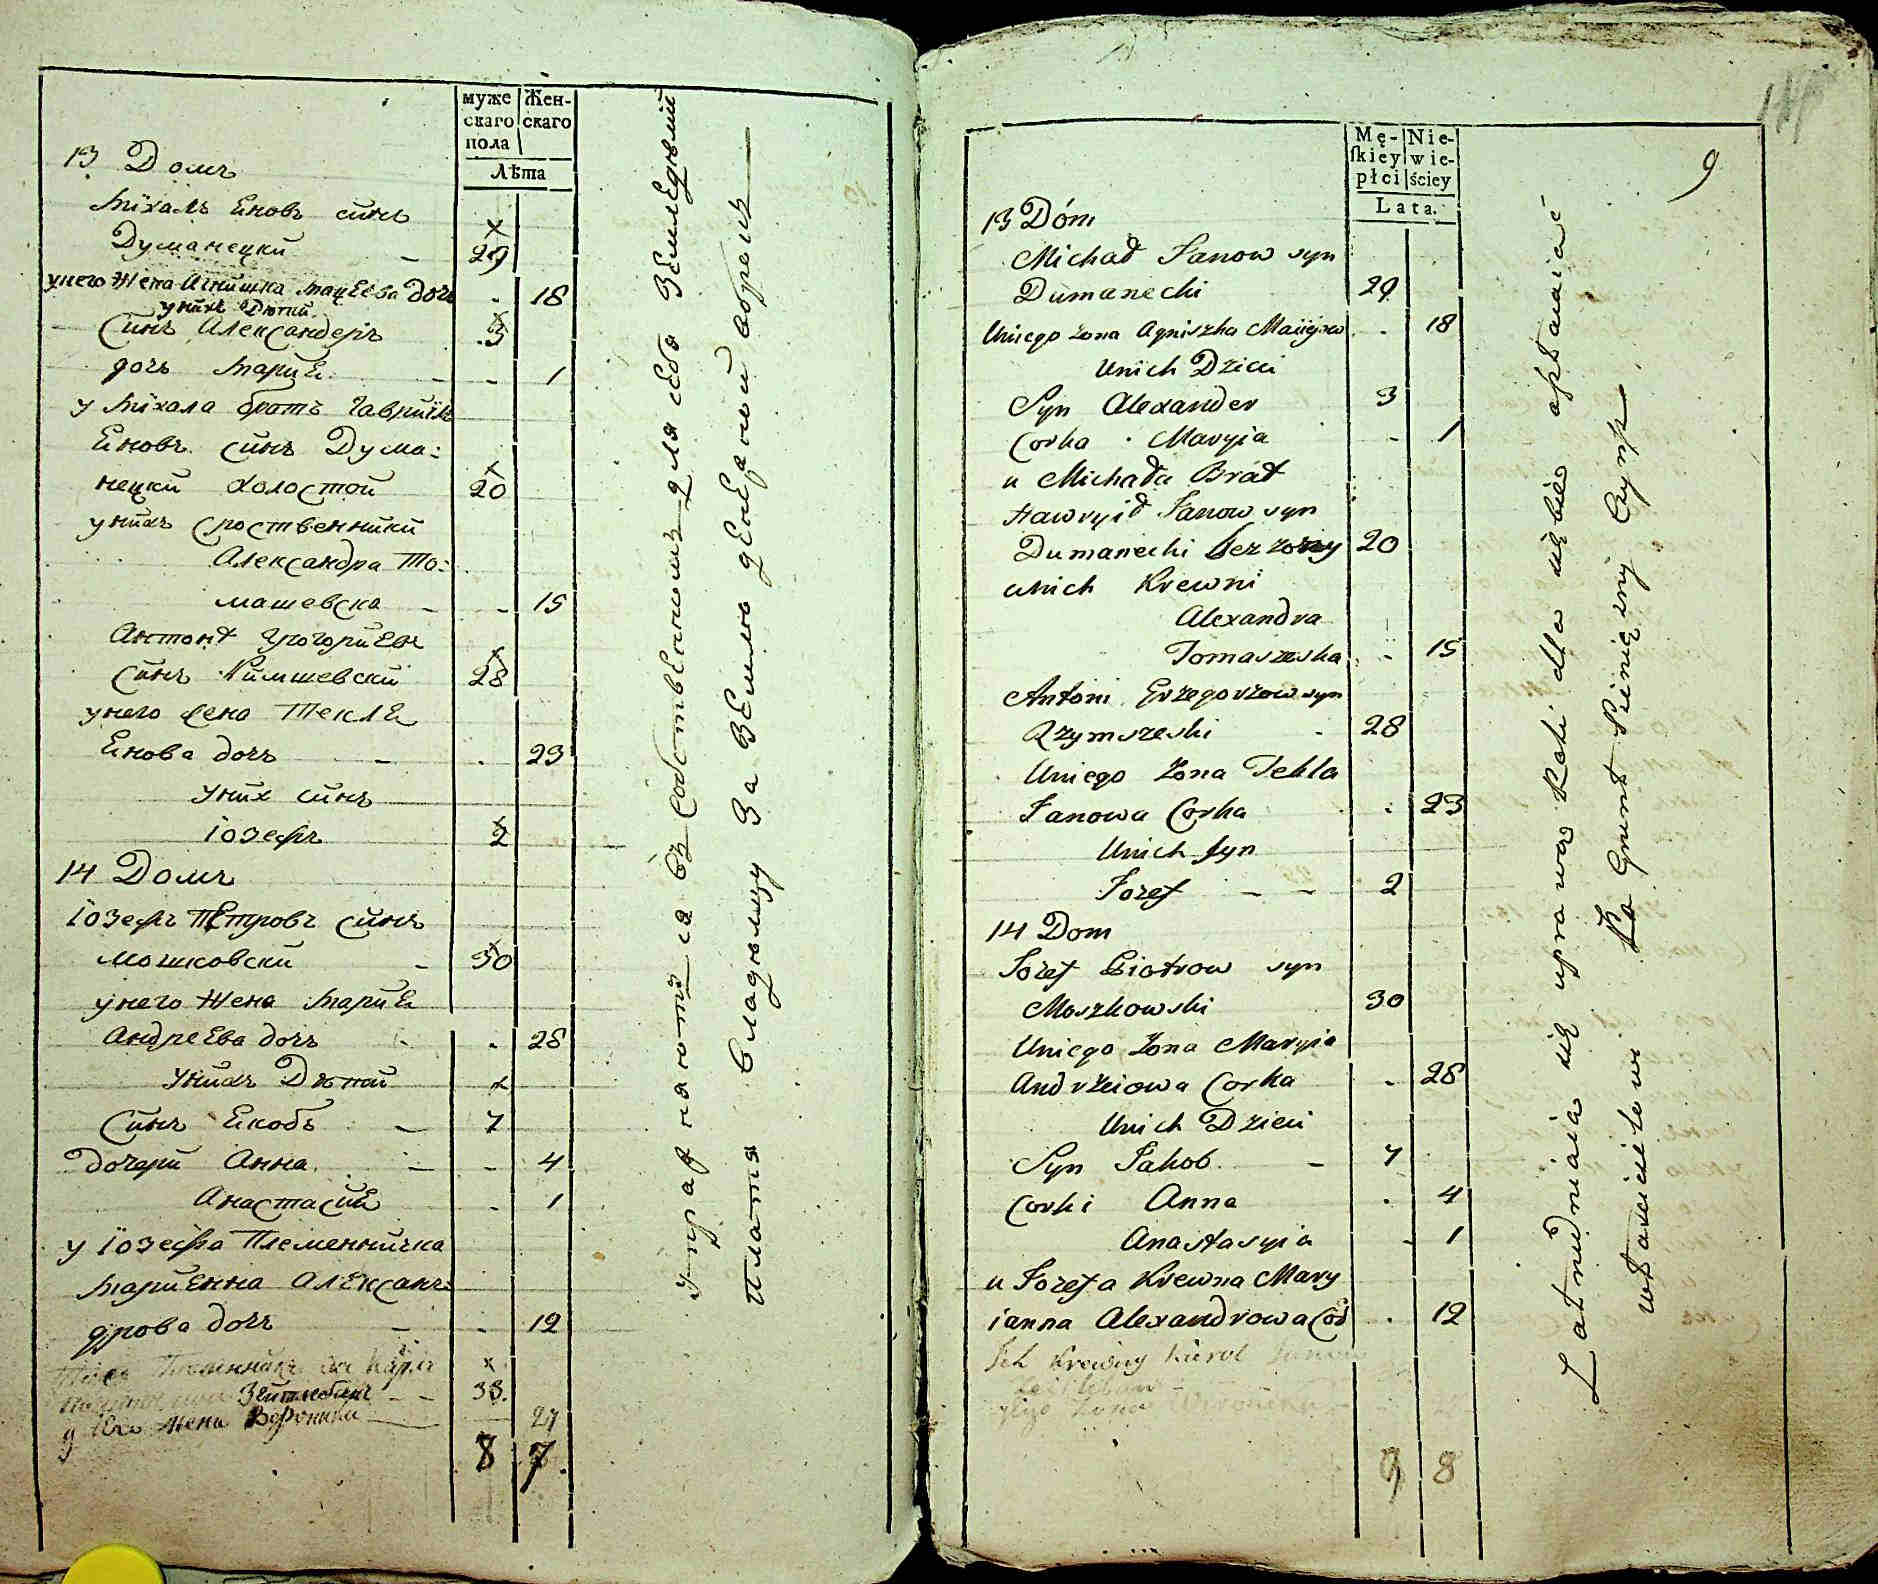 муже
скаго
пола
Жен-
скаго
Лѣта
13 Домъ
Михалъ Еновъ синъ
Думанецки 29
унего Жена Агнишка Мацеева дочъ 18
уних Дѣтй
Синъ Александеръ 3
дочъ Марие 1
у Михала братъ Гаврйілъ
Еновъ Синъ Дума:
нецки холостой 20
унихъ Сроственники
Александра То:
машевска 15
Антонй Григориевъ
Синъ Римшевски 28
унего жена Текле
Енова дочъ 23
Уних синъ
іозефъ 2
14 Домъ
іозефъ Петровъ Синъ
Мошковски 30
унего Жена Марие
Андреева дочъ 28
Унихъ Дѣтей
Синъ Екобъ 7
Дочери Анна 4
Анастасие 1
у іозефа Племенничка
Мариенна Алексан:
дрова дочъ 12
33
Его Жена Вероника 27
8 7
Упражняются въ собственномъ для себя Земледѣлий
платя владѣльцу За Землю денежной оброкъ
9
Mę-
skiey
płci
Nie-
wie-
ściey
Lata.
13 Dóm
Michał Janow syn
Dumanecki 29
Uniego zona Agniszka Maiiejowa 18
Unich Dzieci
Syn Alexander 3
Corka Maryia 1
u Michała Brat
Hawryił Janow syn
Dumanecki bez żony 20
unich Krewni
Alexandra
Tomaszeska 15
Antoni Grzegorzow syn
Rzymszeski 28
Uniego Zona Tekla
Janowa Corka 23
Unich syn
Jozef 2
14 Dom
Jozef Piotrow syn
Moszkowski 30
Uniego Zona Maryia
Andrzeiowa Corka 28
Unich Dzieci
Syn Jakob 7
Corki Anna 4
Anastasyia 1
u Jozefa Krewna Mary
ianna Alexandrowa Cor 12
Ich Krewny Karol
Zona Weronika
9 8
Zatrudniaia się uprawą Roli dla siębie opłacaiąc
właścicielowi Za Grunt Pieniężny Czynsz